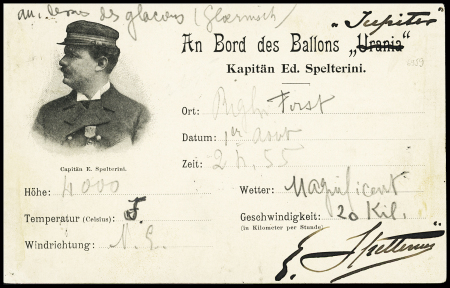 au dessus des glaciers (Glærnisch)
"Jupiter"
An Bord des Ballons "Urania"
Kapitän Ed. Spelterini.
Ort: Righi First
Datum: 1er Août
Zeit: 2 h, 55
Capitän E. Spelterini.
Höhe: 4000
Wetter: Magnificent
Temperatur (Celsius): 5.
Geschwindigkeit: 20 Kil.
(in Kilometer per Stunde)
Windrichtung: N. E.
E. Spelterini